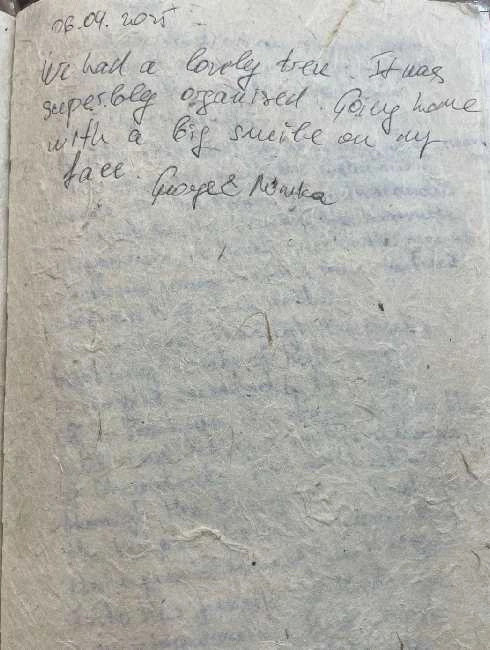 06.04.2025
We had a lovely trek. It was
superbly organised. Going home
with a big smile on my
face. George & Monika